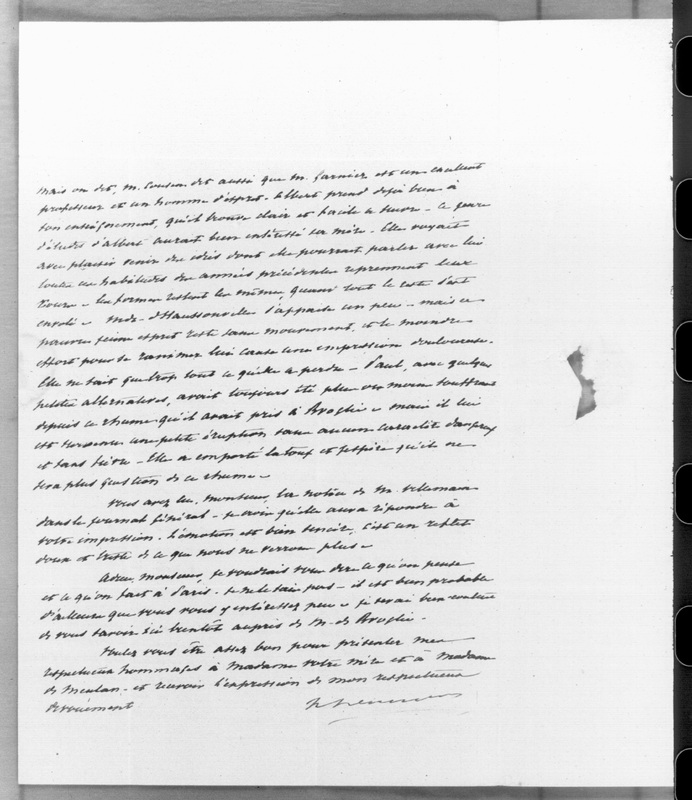 mais on dit, M. Cousin dit aussi que M. Garnier est un excellent
professeur et un homme d'esprit. Albert prend déjà bien à
son enseignement, qu'il trouve clair et facile à suivre - ce genre
d'études d'Albert aurait bien intéressé sa mère. Elle voyait
avec plaisir venir des idées dont elle pourrait parler avec lui
toutes ces habitudes des années précédentes reprennent leur
cours - les formes restent les mêmes quand tout le reste s'est
envolé - Mde d'Haussonville s'appaise un peu - mais ce
pauvre jeune esprit reste sans mouvement, et le moindre
effort pour se ranimer lui cause une impression douloureuse.
Elle ne sait que trop tout ce qu'elle a perdu - Paul, avec quelques
petites alternatives, avait toujours été plus ou moins souffrant
depuis ce rhume qu'il avait pris à Broglie - mais il lui
est survenu une petite éruption sans aucun caractère dangereux
et sans fièvre - Elle a emporté la toux et j'espère qu'il ne
sera plus question de ce rhume -
Vous avez lu, monsieur, la notice de M. Villemain
dans le journal général - je crois qu'elle aura répondu à
votre impression. L'émotion est bien sincère, c'est un reflet
doux et triste de ce que nous ne verrons plus -
Adieu, monsieur, je voudrais vous dire ce qu'on pense
et ce qu'on fait à Paris - je ne le sais pas - il est bien probable
d'ailleurs que vous vous y intéressez peu - je serai bien contente
de vous savoir ici bientôt auprès de M. de Broglie -
Voulez vous être assez bon pour présenter mes
respectueux hommages à Madame votre mère et à Madame
de Meulan - et recevoir l'expression de mon respectueux
dévouement